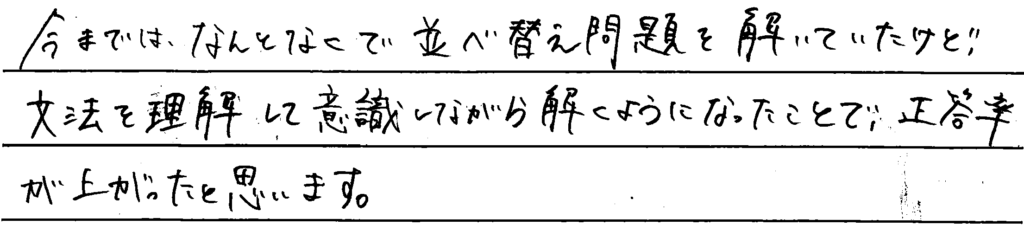 今までは、なんとなくで並べ替え問題を解いていたけど、
文法を理解して意識しながら解くようになったことで、正答率
が上がったと思います。